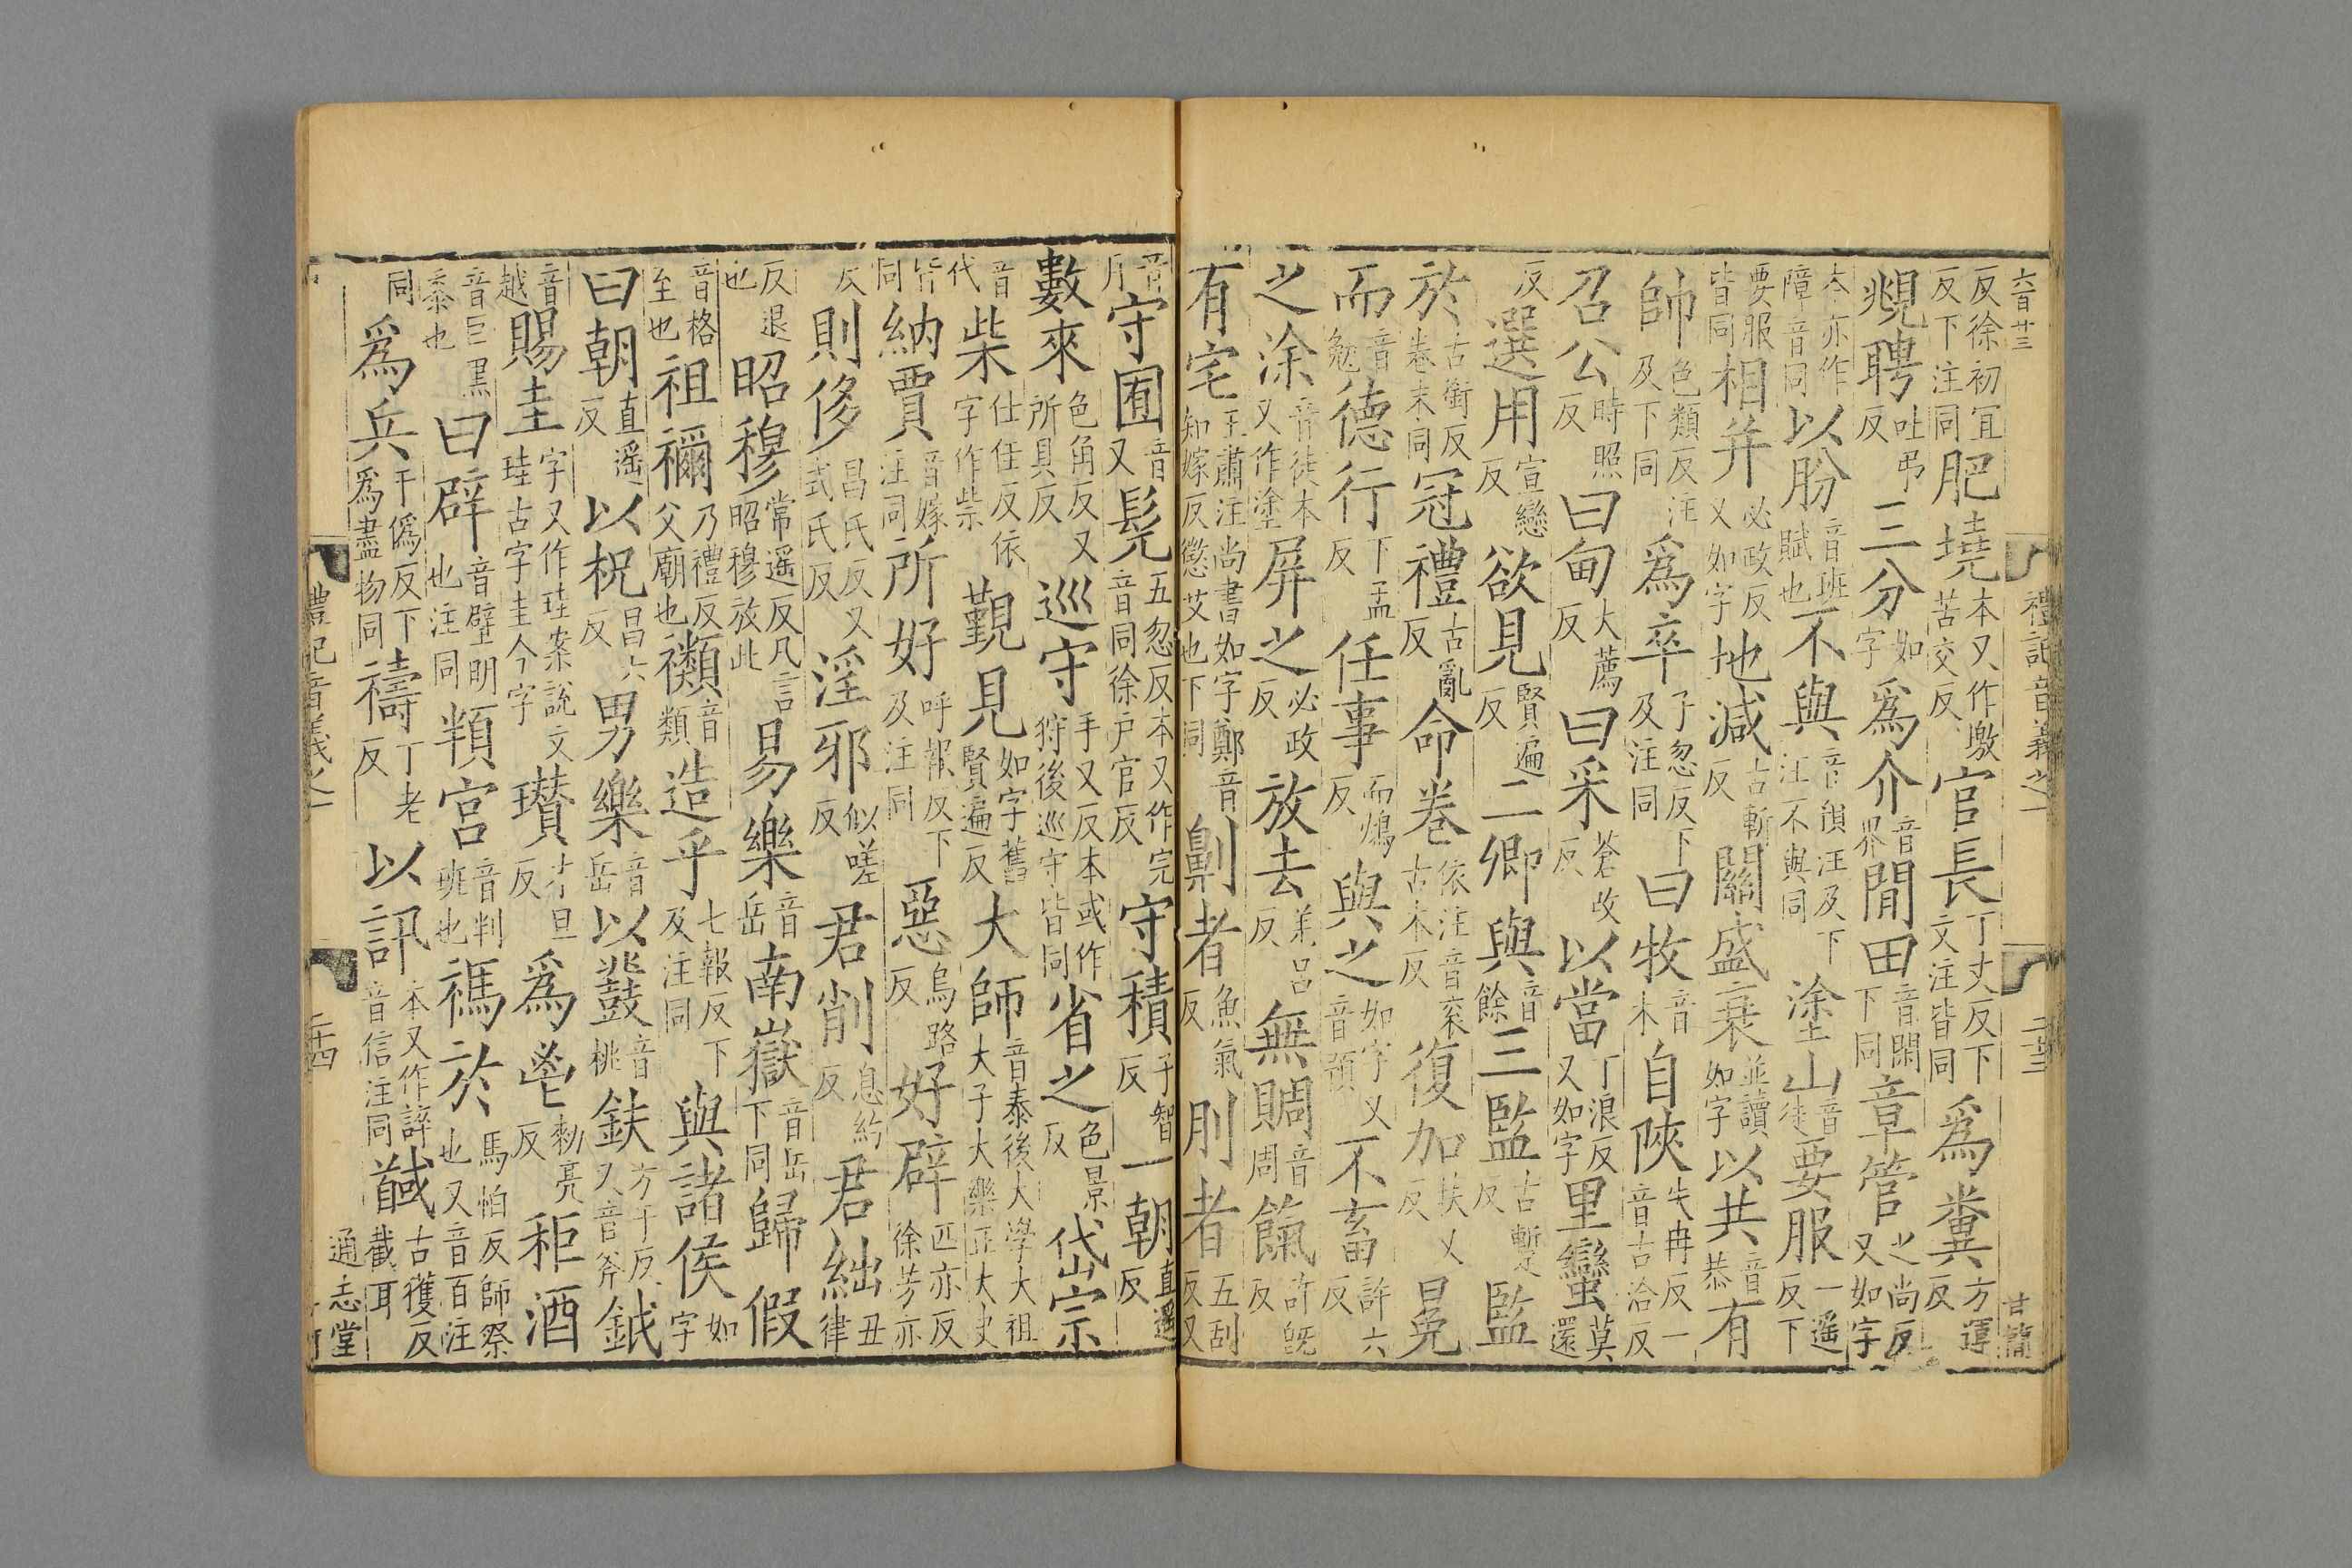 六百廿三　禮記音義之一　二十三　甘簡
反徐初冝反下注同肥墝本又作墽苦交反官長丁丈反下文注皆同爲糞方運反
覜聘吐弔反三分如字爲介音界閒田音閑下同章管之尚反又如字
大亦作障音同以朌音班賦也不與音預注及下注不與同塗山音徒要服一遥反下
要服皆同相并必政反又如字地減古斬反關盛衰並讀如字以共音恭有
帥色類反注及下同爲卒子忽反下及注同曰牧音木自陜失冉反一音古洽反
召公時照反曰甸大薦反曰采蒼改反以當丁浪反又如字里蠻莫還
反選用宣戀反欲見賢遍反二卿與音餘三監古蹔反監
於古銜反卷末同冠禮古亂反命卷依注音衮古本反復加扶又反冕
而音勉德行下孟反任事而鴆反與之如字又音預不畜許六反
之涂音徒本又作塗屏之必政反放去羌吕反無賙音周餼許旣反
有宅王肅注尚書如字鄭音知嫁反懲艾也下同劓者魚氣反刖者五刮反又
音月守囿音又髡五忽反本又作完音同徐户官反守積子智反一朝直遥反
數來色角反又所具反巡守手又反本或作狩後巡守皆同省之色景反岱宗
音代柴仕佳反依字作祡覲見如字舊賢遍反大師音泰後大學大祖大子大樂正大史
皆同納賈音嫁注同所好呼報反下及注同惡烏路反好辟匹亦反徐芳亦
反則侈昌氏反又式氏反淫邪似嗟反君削息約反君絀丑律
反退也昭穆常遥反凡言昭穆放此易樂音岳南嶽音岳下同歸假
音格至也祖禰乃禮反父廟也禷音類造乎七報反下及注同與諸侯如字
曰朝直遥反以柷昌六反男樂音岳以鼗音桃鈇方于反又音斧鉞
音越賜圭字又作珪案說文珪古字圭今字瓚才旦反爲鬯勑亮反秬酒
音巨黑黍也曰辟音璧明也注同頖宮音判班也禡於馬怕反師祭也又音百注
同爲兵于僞反下爲盡物同禱丁老反以訊本又作誶音信注同馘古獲反截耳
禮記音義之一　二十四　通志堂